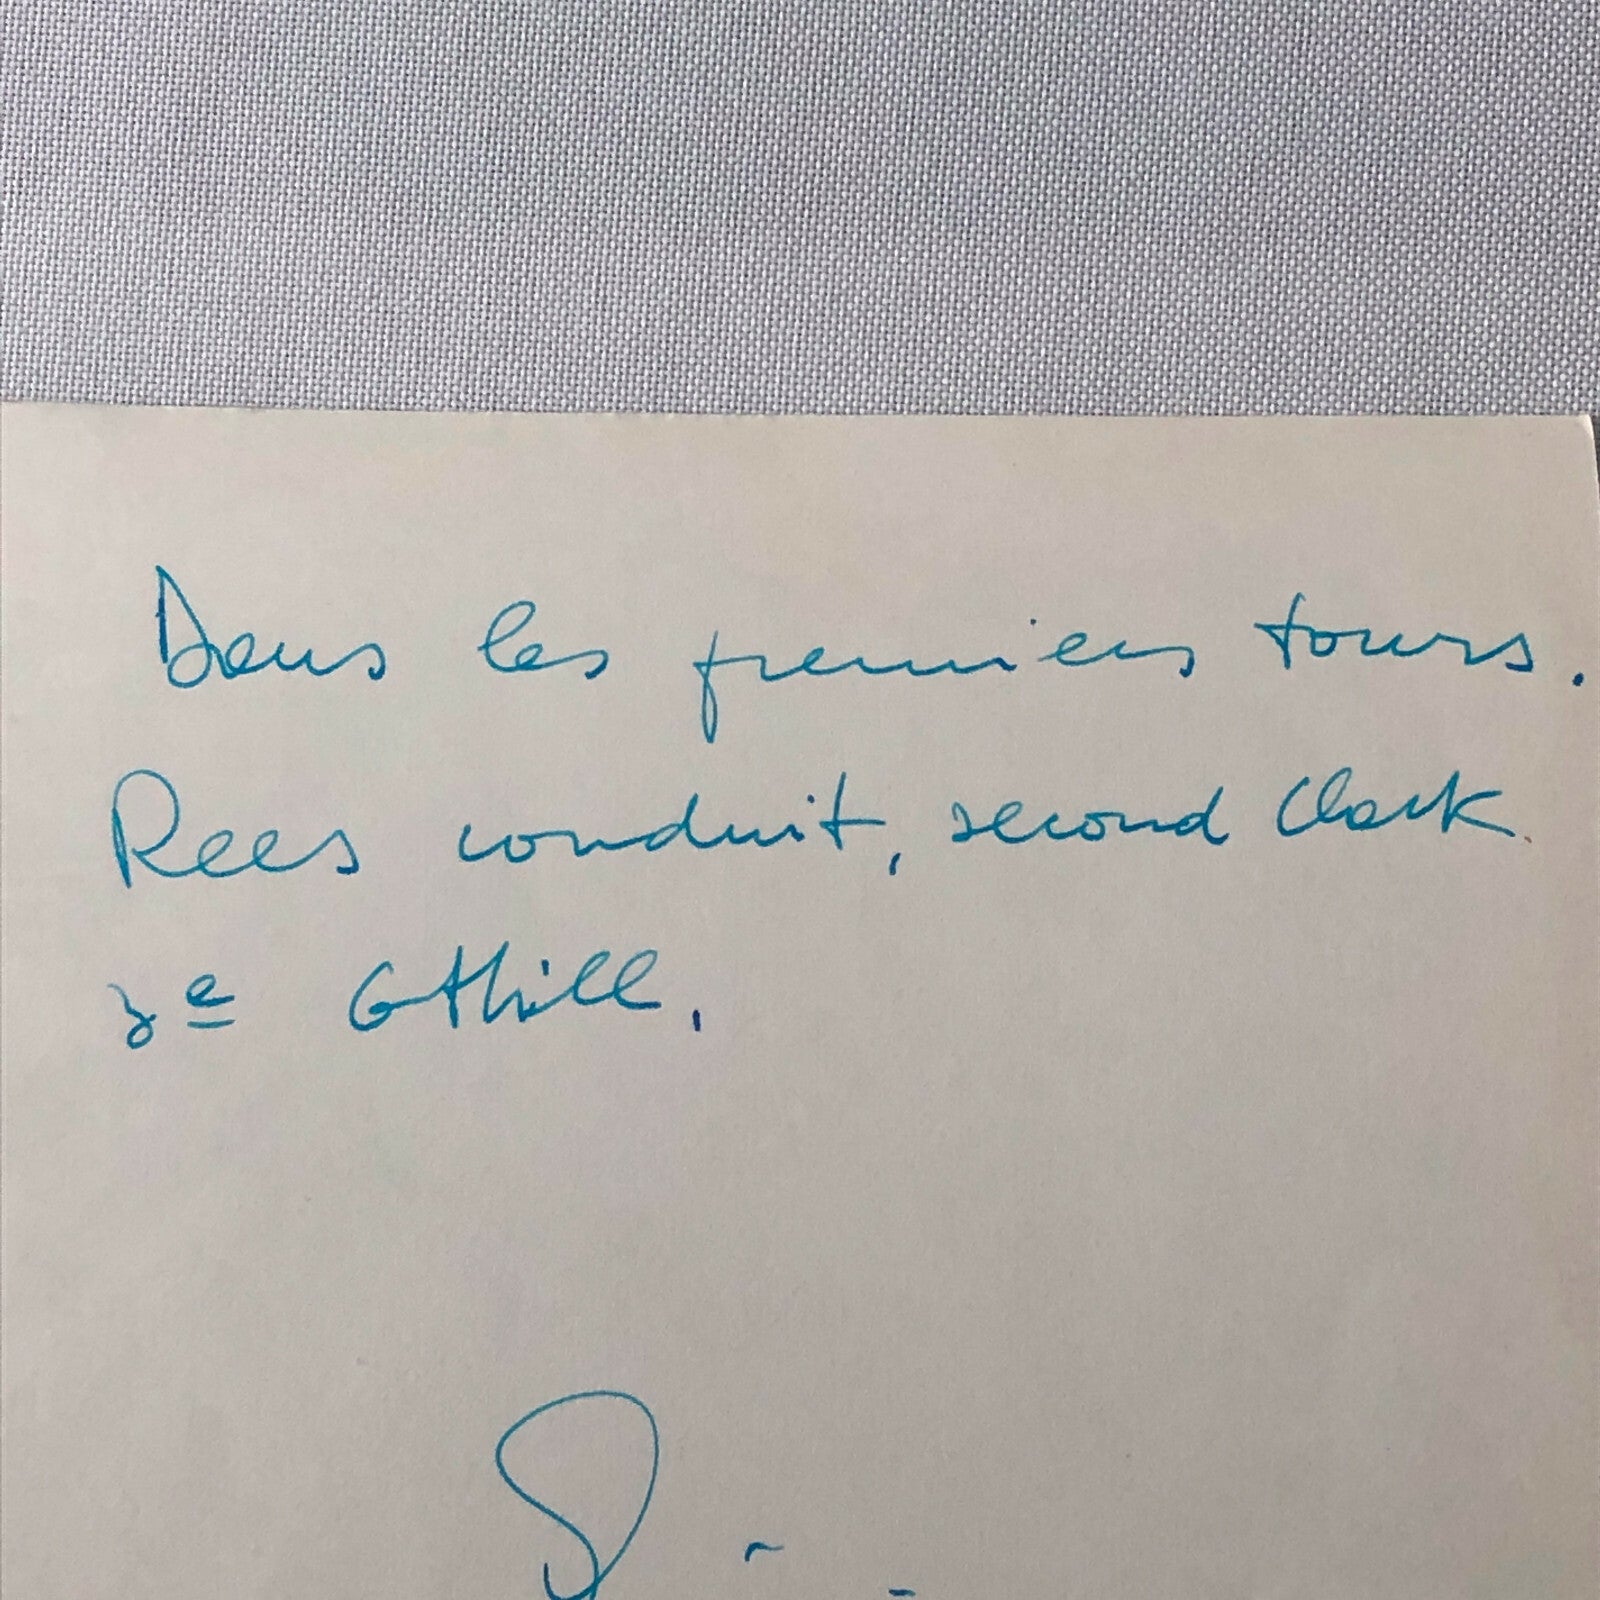 Dans les premiers tours.
Rees conduit, second Clark.
3e G Hill.